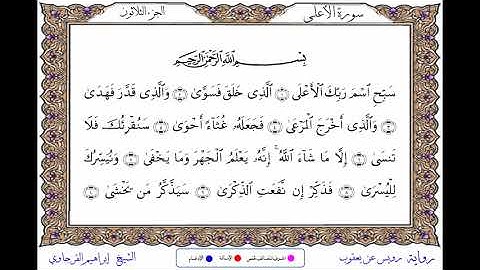 سورة الأعلى
الجزء الثلاثون
بِسْمِ ٱللَّهِ ٱلرَّحْمَٰنِ ٱلرَّحِيمِ
سَبِّحِ ٱسْمَ رَبِّكَ ٱلْأَعْلَى ۝ ٱلَّذِي خَلَقَ فَسَوَّىٰ ۝ وَٱلَّذِي قَدَّرَ فَهَدَىٰ
۝ وَٱلَّذِي أَخْرَجَ ٱلْمَرْعَىٰ ۝ فَجَعَلَهُۥ غُثَآءً أَحْوَىٰ ۝ سَنُقْرِئُكَ فَلَا
تَنسَىٰ ۝ إِلَّا مَا شَآءَ ٱللَّهُ ۚ إِنَّهُۥ يَعْلَمُ ٱلْجَهْرَ وَمَا يَخْفَىٰ ۝ وَنُيَسِّرُكَ
لِلْيُسْرَىٰ ۝ فَذَكِّرْ إِن نَّفَعَتِ ٱلذِّكْرَىٰ ۝ سَيَذَّكَّرُ مَن يَخْشَىٰ ۝
رواية رويس عن يعقوب
الإمالة
الإدغام
الشيخ إبراهيم الفرجاوي